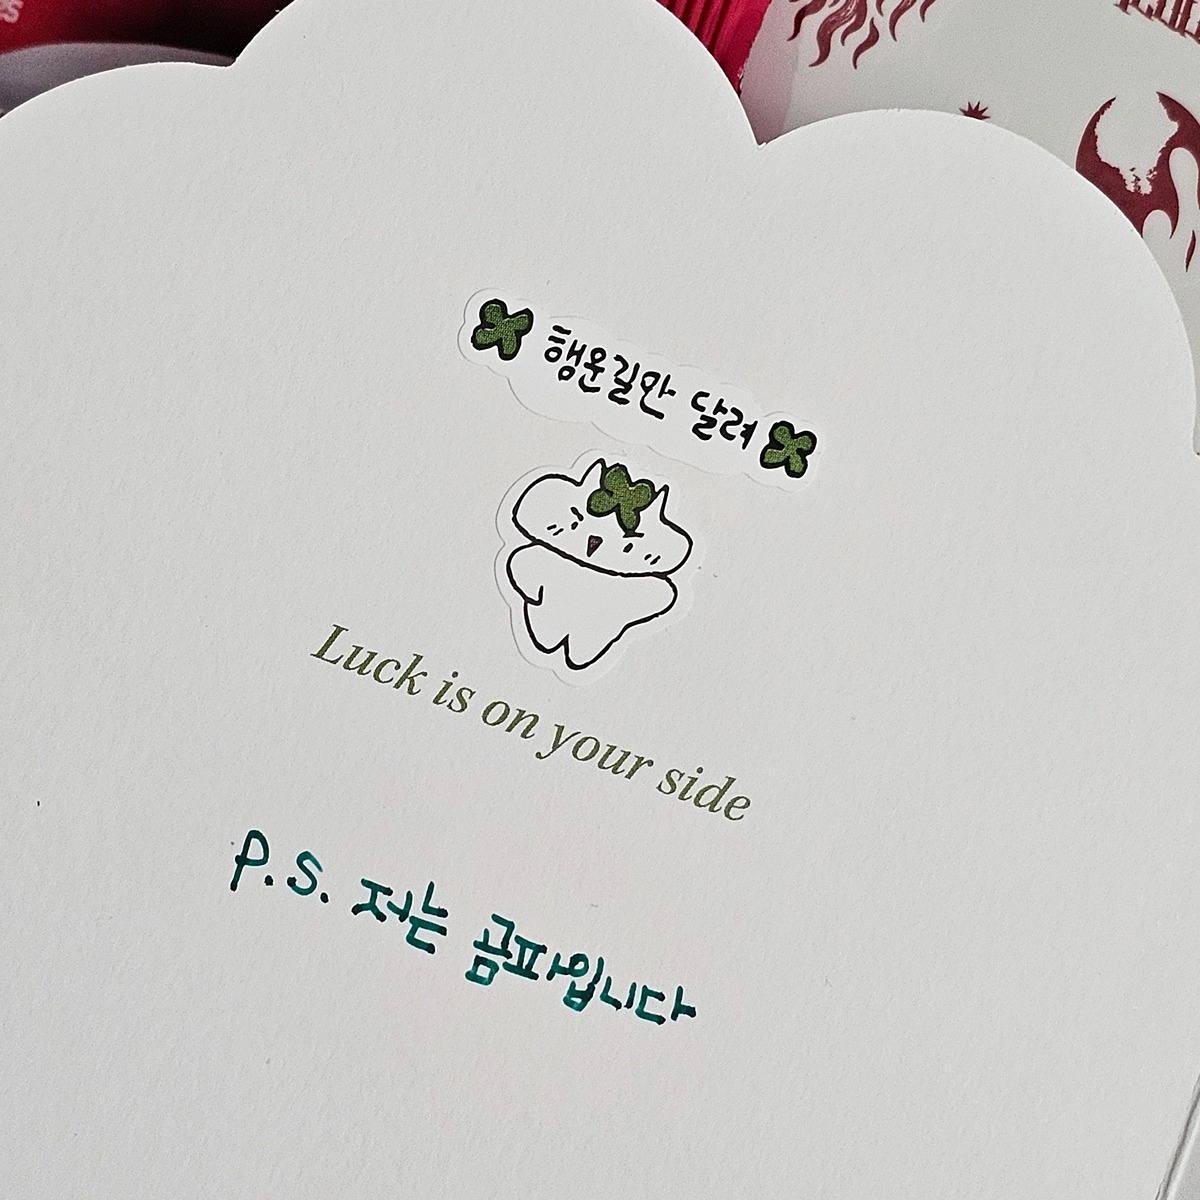 행운길만 달려
Luck is on your side
P.S. 저는 곰파입니다